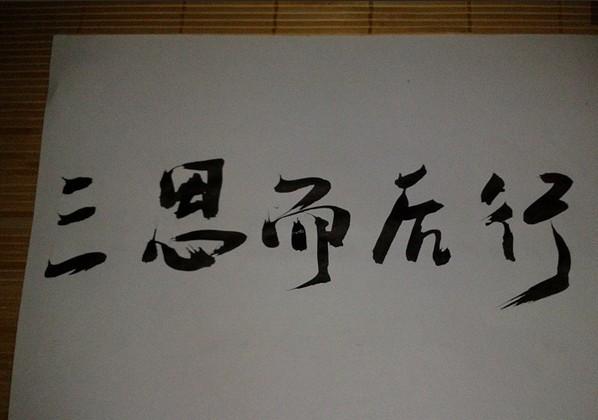 三思而后行